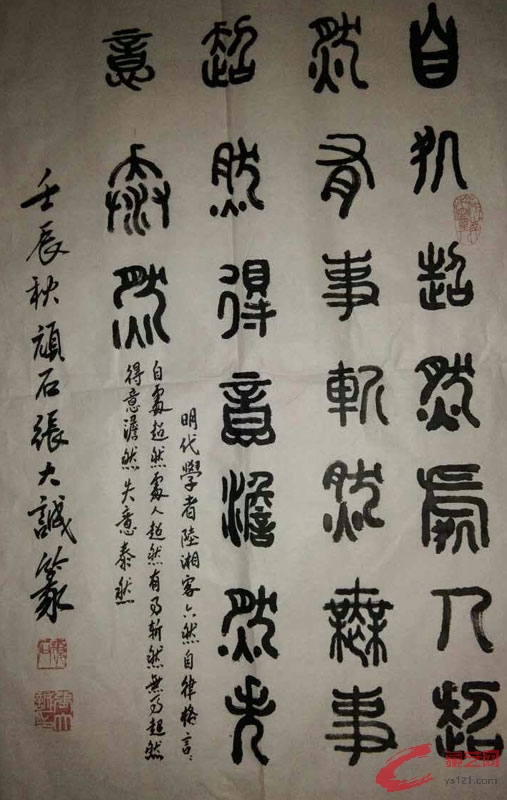 自処超然處人超
然有事斬然無事
超然得意澹然失
意泰然
明代學者陸湘客六然自律格言:
自處超然處人超然有事斬然無事超然
得意澹然失意泰然
壬辰秋頑石張大誠篆
ys121.com